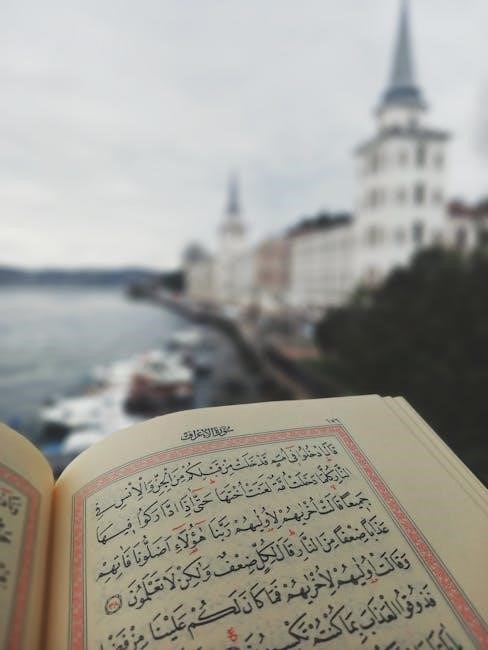 سُورَةُ الْاَعْرَافِ
١٥٤
قَالَ ادْخُلُوا فٓى اُمَمٍ قَدْ خَلَتْ مِنْ قَبْلِكُمْ مِنَ الْجِنِّ وَالْاِنْسِ فِى
النَّارِ كُلَّمَا دَخَلَتْ اُمَّةٌ لَعَنَتْ اُخْتَهَا حَتّٰٓى اِذَا ادَّارَكُوا فٖيهَا
جَمٖيعًا قَالَتْ اُخْرٰيهُمْ لِاُولٰيهُمْ رَبَّنَا هٰٓؤُلَٓاءِ اَضَلُّونَا فَاٰتِهِمْ
عَذَابًا ضِعْفًا مِنَ النَّارِ قَالَ لِكُلٍّ ضِعْفٌ وَلٰكِنْ لَا تَعْلَمُونَ ٣٨
وَقَالَتْ اُولٰيهُمْ لِاُخْرٰيهُمْ فَمَا كَانَ لَكُمْ عَلَيْنَا مِنْ فَضْلٍ
فَذُوقُوا الْعَذَابَ بِمَا كُنْتُمْ تَكْسِبُونَ